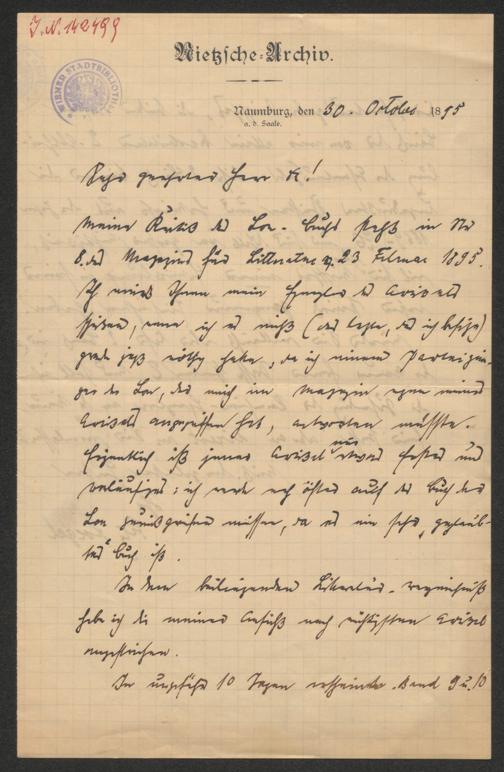 J.N. 142499
WIENER STADTBIBLIOTHEK
Nietzsche-Archiv.
Naumburg, den 30 October 1895
a. d. Saale.
Sehr geehrter Herr K!
Meine Kritik des Lou-Buchs steht in No
8. des Magazins für Litteratur v. 23 Februar 1895.
Ich würde Ihnen mein Exemplar des Artikels
schicken, wenn ich es nicht (das letzte, das ich besitze)
grade jetzt nötig hätte, da ich einem Parteigän-
ger der Lou, der mich im Magazin wegen meines
Artikels angegriffen hat, antworten müsste.
Eigentlich ist jener Artikel nur etwas Erstes und
vorläufiges; ich werde noch öfters auf das Buch der
Lou zurückgreifen müssen, da es ein sehr
Buch ist.
In dem beiliegenden Litteratur-verzeichniß
habe ich die meiner Ansicht nach wichtigsten Artikel
angestrichen.
In ungefähr 10 Tagen erscheinen Band 9 u. 10